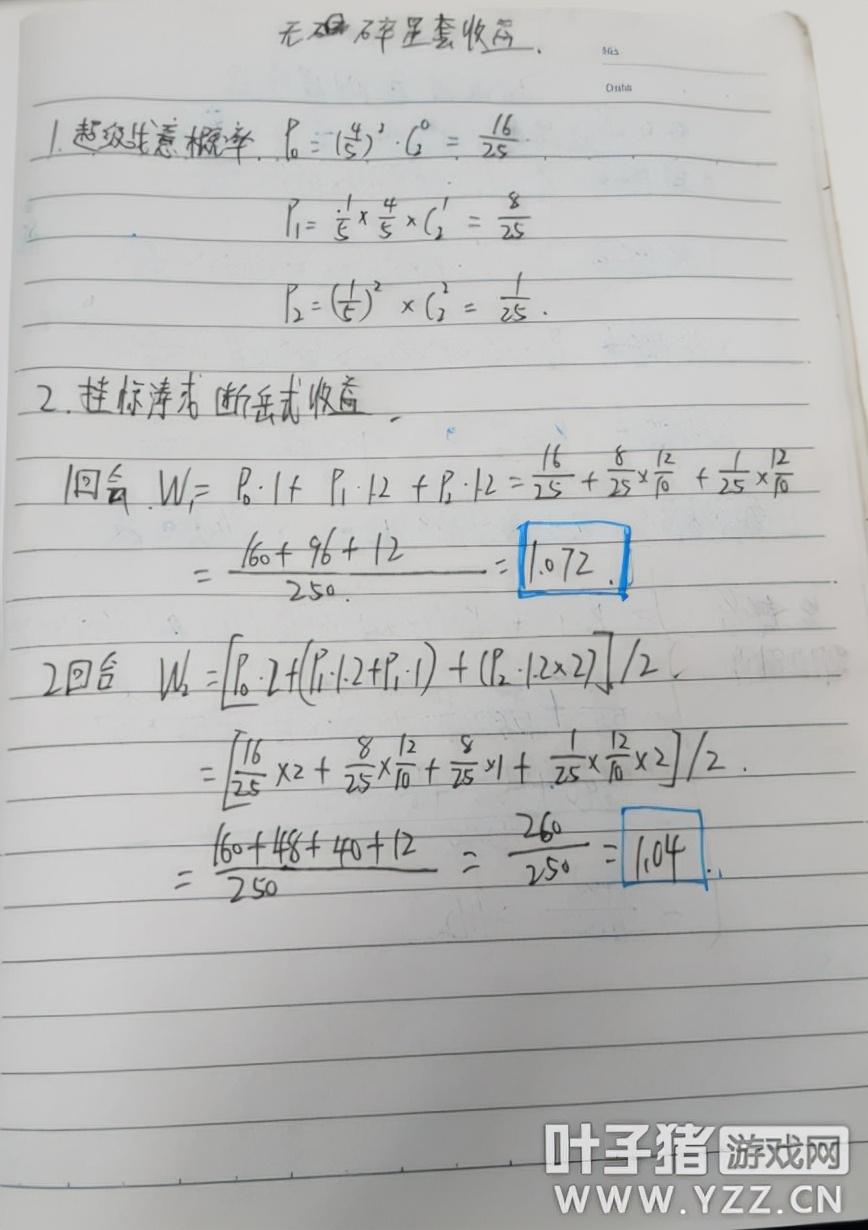 无 碎星套收益.
No.
Date
1.超级战意概率. P₀=(4/5)²·C₂⁰=16/25.
P₁=1/5×4/5×C₂¹=8/25
P₂=(1/5)²×C₂²=1/25.
2.挂标涛击断岳式收益.
1回合.W₁=P₀·1+P₁·1.2+P₂·1.2=16/25+8/25×12/10+1/25×12/10
=(160+96+12)/250.=1.072.
2回合 W₂=[P₀·2+(P₁·1.2+P₁·1)+(P₂·1.2×2)]/2.
=[16/25×2+8/25×12/10+8/25×1+1/25×12/10×2]/2.
=(160+48+40+12)/250=260/250=1.04.
叶子猪 游戏网
WWW.YZZ.CN